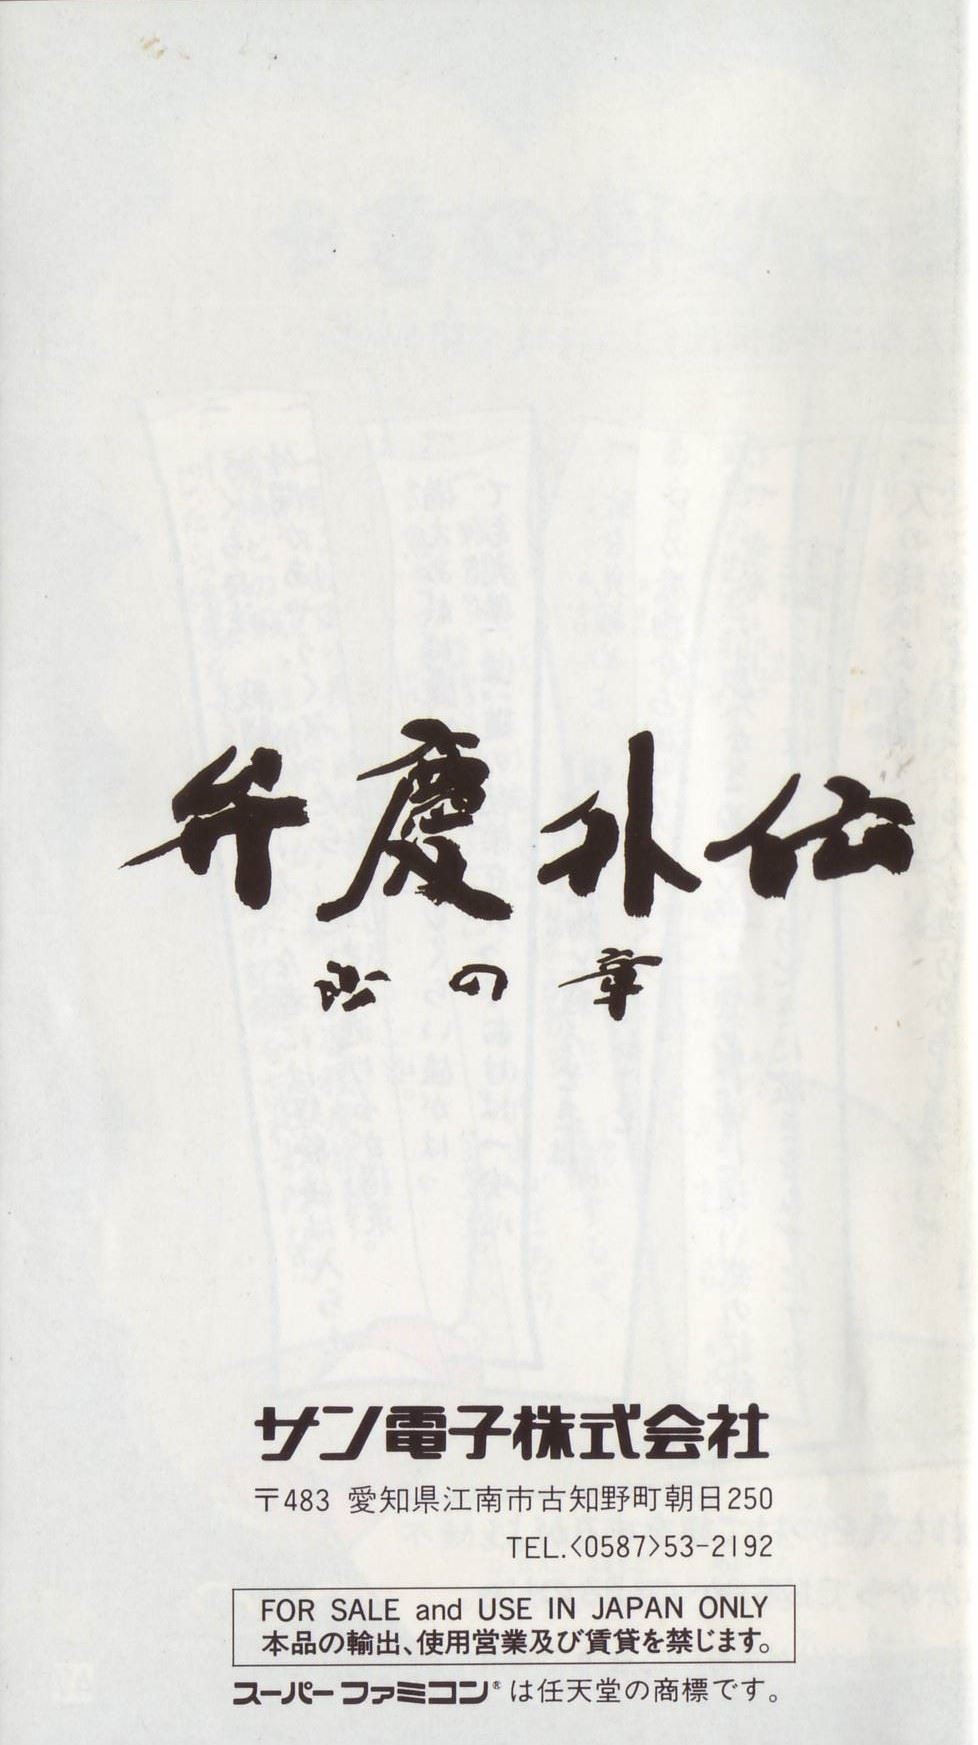 弁慶外伝
沙の章
サン電子株式会社
〒483 愛知県江南市古知野町朝日250
TEL.<0587>53-2192
FOR SALE and USE IN JAPAN ONLY
本品の輸出、使用営業及び賃貸を禁じます。
スーパーファミコン®は任天堂の商標です。